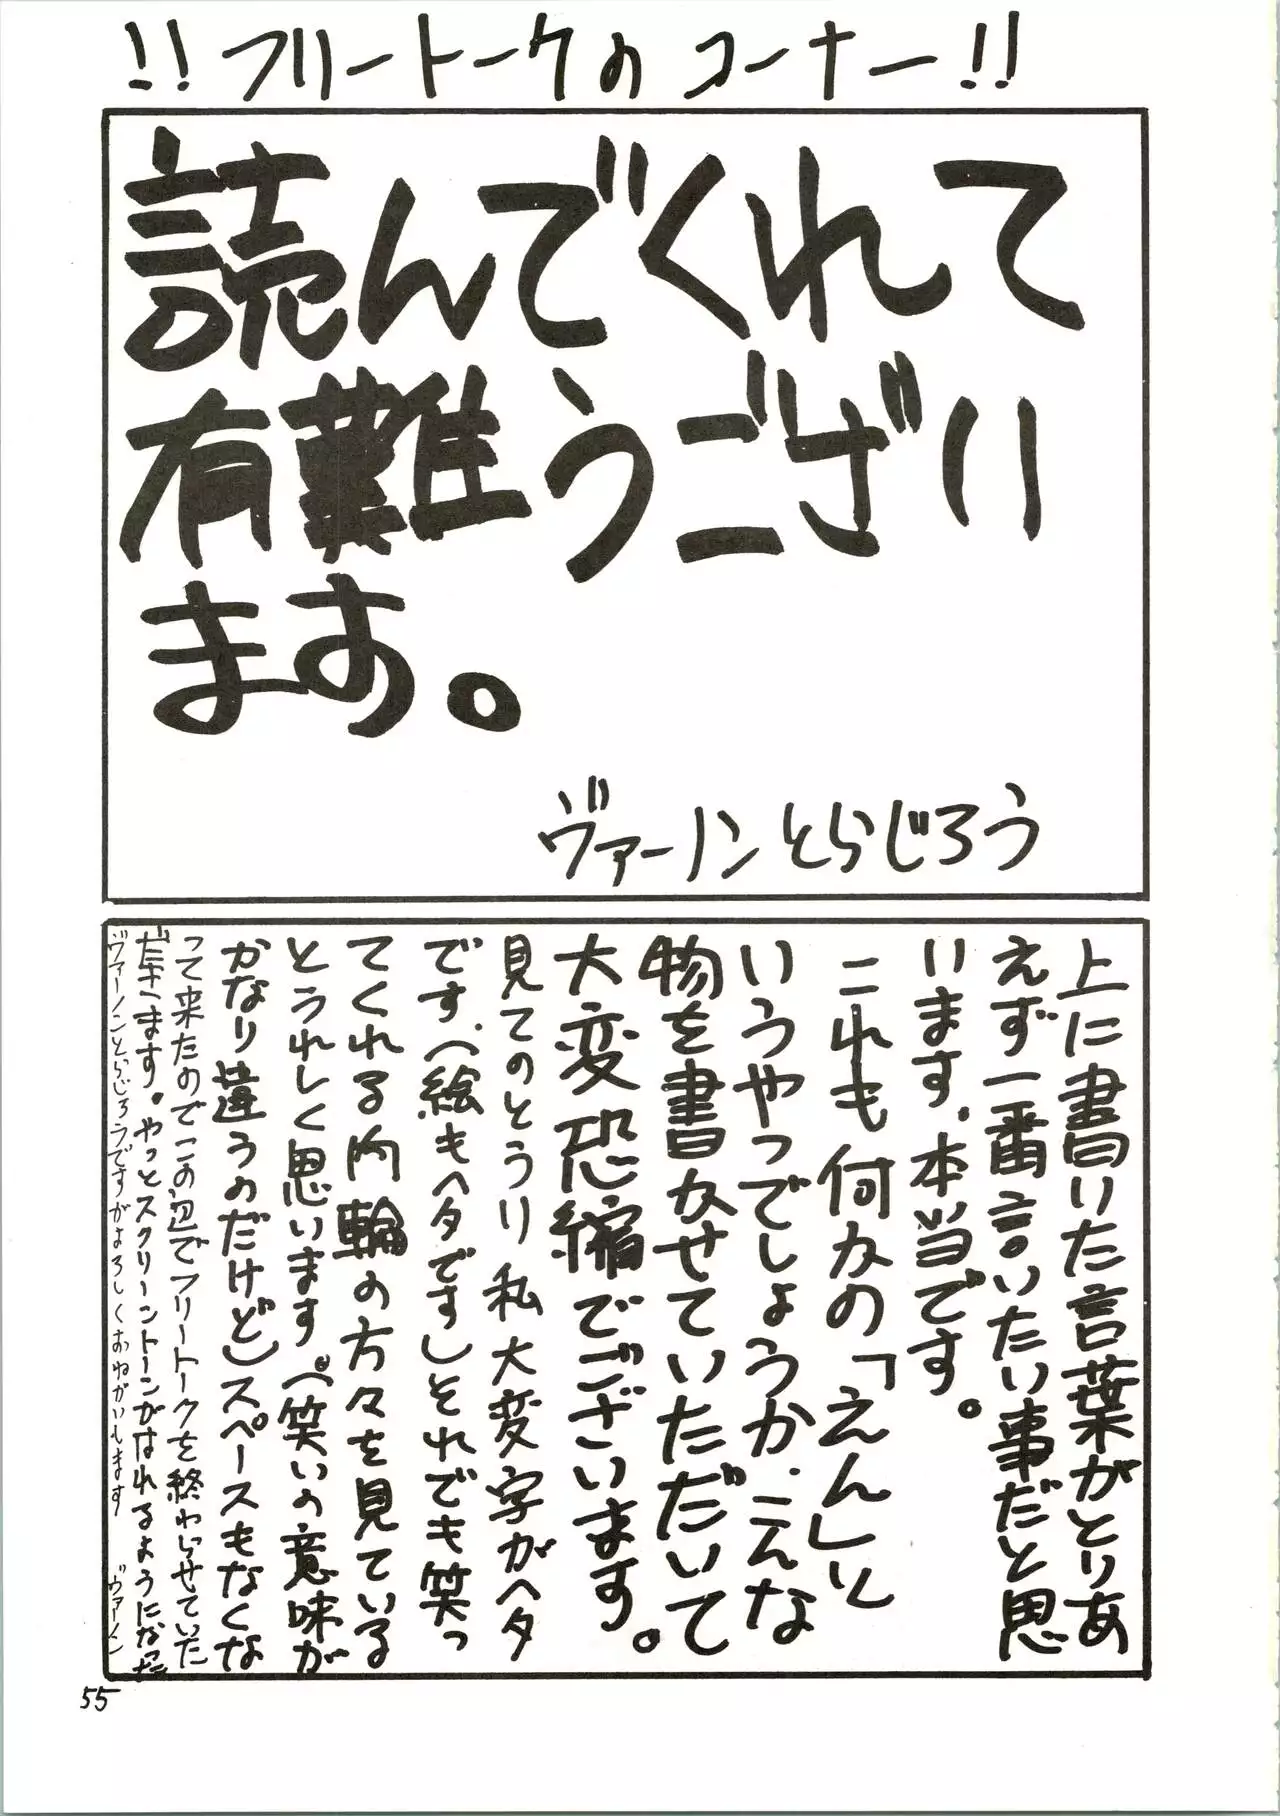 !!フリートークのコーナー!!
読んでくれて
有難うござい
ます。
ヴァーノンとらじろう
上に書いた言葉がとりあ
えず一番言いたい事だと思
います。本当です。
これも何かの「えん」と
いうやつでしょうか.こんな
物を書かせていただいて
大変恐縮でございます。
見てのとうり私大変字がヘタ
です.(絵もヘタです)それでも笑っ
てくれる内輪の方々を見ている
とうれしく思います。(笑いの意味が
かなり違うのだけど)スペースもなくな
って来たのでこの辺でフリートークを終わらせていた
だきます。やっとスクリーントーンがはれるようになった
ヴァーノンとらじろうですがよろしくおねがいします ヴァーノン
55